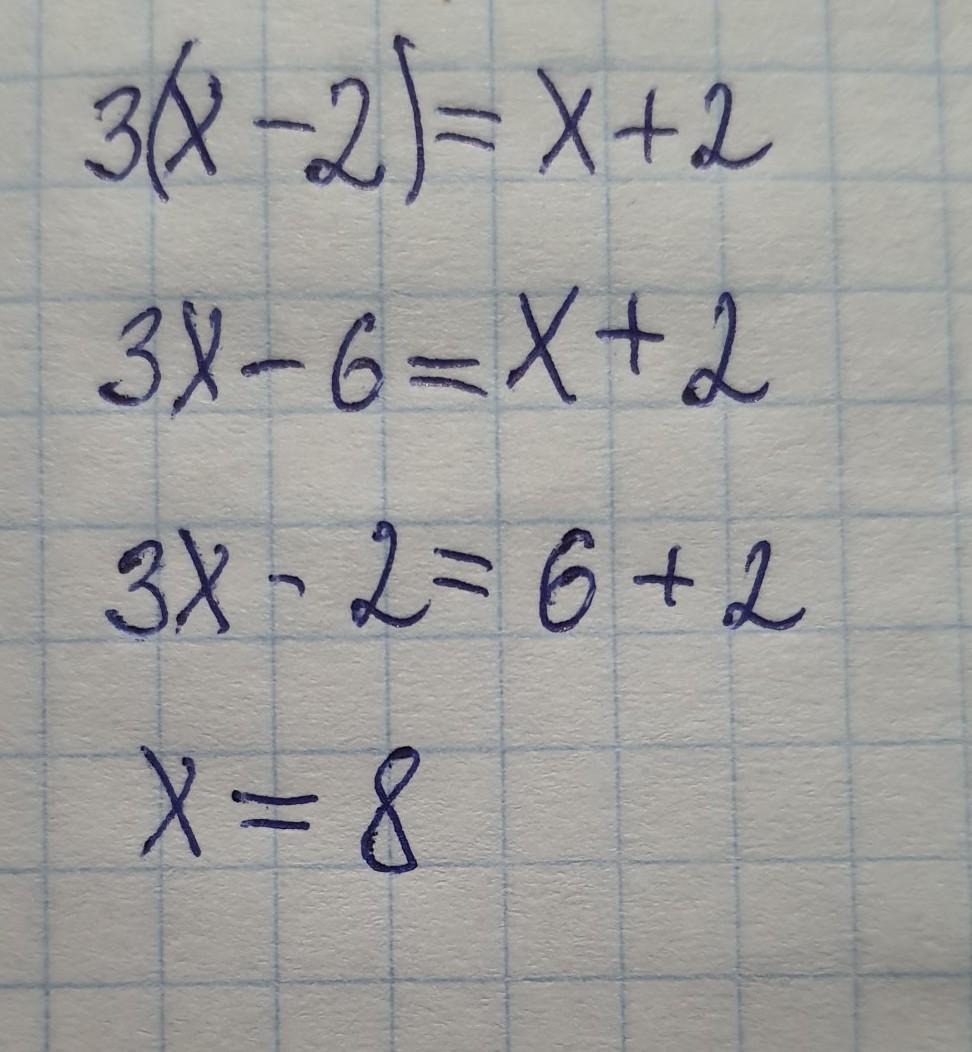 3(x - 2) = x + 2
3x - 6 = x + 2
3x - 2 = 6 + 2
x = 8